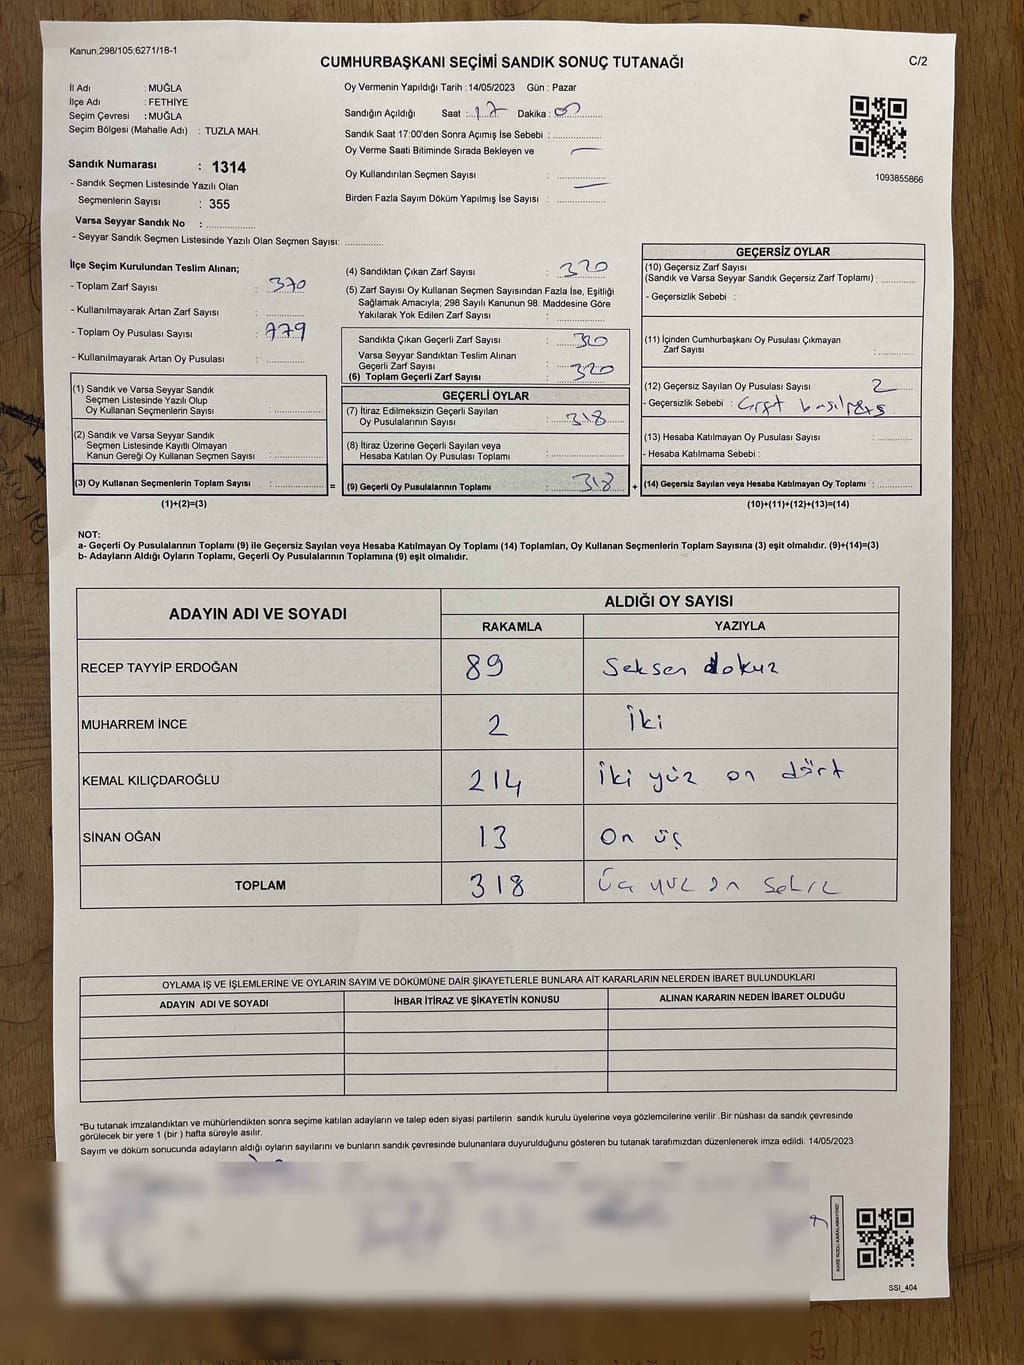 Kanun;298/105;6271/18-1
CUMHURBAŞKANI SEÇİMİ SANDIK SONUÇ TUTANAĞI
C/2
İl Adı : MUĞLA
İlçe Adı : FETHİYE
Seçim Çevresi : MUĞLA
Seçim Bölgesi (Mahalle Adı) : TUZLA MAH.
Sandık Numarası : 1314
- Sandık Seçmen Listesinde Yazılı Olan
Seçmenlerin Sayısı : 355
Varsa Seyyar Sandık No :
- Seyyar Sandık Seçmen Listesinde Yazılı Olan Seçmen Sayısı:
Oy Vermenin Yapıldığı Tarih : 14/05/2023 Gün : Pazar
Sandığın Açıldığı Saat : 17 Dakika : 00
Sandık Saat 17:00'den Sonra Açımış İse Sebebi :
Oy Verme Saati Bitiminde Sırada Bekleyen ve
Oy Kullandırılan Seçmen Sayısı :
Birden Fazla Sayım Döküm Yapılmış İse Sayısı :
1093855866
İlçe Seçim Kurulundan Teslim Alınan;
- Toplam Zarf Sayısı : 370
- Kullanılmayarak Artan Zarf Sayısı :
- Toplam Oy Pusulası Sayısı : 779
- Kullanılmayarak Artan Oy Pusulası :
(1) Sandık ve Varsa Seyyar Sandık
Seçmen Listesinde Yazılı Olup
Oy Kullanan Seçmenlerin Sayısı :
(2) Sandık ve Varsa Seyyar Sandık
Seçmen Listesinde Kayıtlı Olmayan
Kanun Gereği Oy Kullanan Seçmen Sayısı :
(3) Oy Kullanan Seçmenlerin Toplam Sayısı : =
(1)+(2)=(3)
(4) Sandıktan Çıkan Zarf Sayısı : 320
(5) Zarf Sayısı Oy Kullanan Seçmen Sayısından Fazla İse, Eşitliği
Sağlamak Amacıyla; 298 Sayılı Kanunun 98. Maddesine Göre
Yakılarak Yok Edilen Zarf Sayısı :
Sandıkta Çıkan Geçerli Zarf Sayısı : 320
Varsa Seyyar Sandıktan Teslim Alınan
Geçerli Zarf Sayısı :
(6) Toplam Geçerli Zarf Sayısı : 320
GEÇERLİ OYLAR
(7) İtiraz Edilmeksizin Geçerli Sayılan
Oy Pusulalarının Sayısı : 318
(8) İtiraz Üzerine Geçerli Sayılan veya
Hesaba Katılan Oy Pusulası Toplamı :
(9) Geçerli Oy Pusulalarının Toplamı : 318 +
GEÇERSİZ OYLAR
(10) Geçersiz Zarf Sayısı
(Sandık ve Varsa Seyyar Sandık Geçersiz Zarf Toplamı) :
- Geçersizlik Sebebi :
(11) İçinden Cumhurbaşkanı Oy Pusulası Çıkmayan
Zarf Sayısı :
(12) Geçersiz Sayılan Oy Pusulası Sayısı : 2
- Geçersizlik Sebebi :
(13) Hesaba Katılmayan Oy Pusulası Sayısı :
- Hesaba Katılmama Sebebi :
(14) Geçersiz Sayılan veya Hesaba Katılmayan Oy Toplamı :
(10)+(11)+(12)+(13)=(14)
NOT:
a- Geçerli Oy Pusulalarının Toplamı (9) ile Geçersiz Sayılan veya Hesaba Katılmayan Oy Toplamı (14) Toplamları, Oy Kullanan Seçmenlerin Toplam Sayısına (3) eşit olmalıdır. (9)+(14)=(3)
b- Adayların Aldığı Oyların Toplamı, Geçerli Oy Pusulalarının Toplamına (9) eşit olmalıdır.
ADAYIN ADI VE SOYADI
ALDIĞI OY SAYISI
RAKAMLA YAZIYLA
RECEP TAYYİP ERDOĞAN 89 Seksen dokuz
MUHARREM İNCE 2 İki
KEMAL KILIÇDAROĞLU 214 İki yüz on dört
SİNAN OĞAN 13 On üç
TOPLAM 318 Üç yüz on sekiz
OYLAMA İŞ VE İŞLEMLERİNE VE OYLARIN SAYIM VE DÖKÜMÜNE DAİR ŞİKAYETLERLE BUNLARA AİT KARARLARIN NELERDEN İBARET BULUNDUKLARI
ADAYIN ADI VE SOYADI İHBAR İTİRAZ VE ŞİKAYETİN KONUSU ALINAN KARARIN NEDEN İBARET OLDUĞU
*Bu tutanak imzalandıktan ve mühürlendikten sonra seçime katılan adayların ve talep eden siyasi partilerin sandık kurulu üyelerine veya gözlemcilerine verilir .Bir nüshası da sandık çevresinde
görülecek bir yere 1 (bir ) hafta süreyle asılır.
Sayım ve döküm sonucunda adayların aldığı oyların sayılarını ve bunların sandık çevresinde bulunanlara duyurulduğunu gösteren bu tutanak tarafımızdan düzenlenerek imza edildi. 14/05/2023
KARE KODU KARALAMAYINIZ!
SSI_404